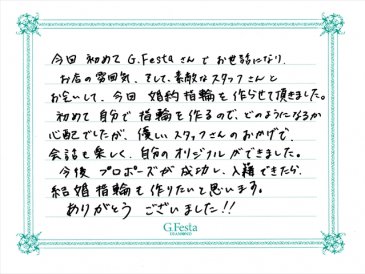 今回 初めて G.Festaさんでお世話になり、
お店の雰囲気、そして、素敵なスタッフさんと
お会いして、今回 婚約指輪を作らせて頂きました。
初めて 自分で 指輪を 作るので、どのようになるか
心配でしたが、優しいスタッフさんのおかげで、
会話も楽しく、自分のオリジナルができました。
今後 プロポーズが成功し、入籍できたら、
結婚指輪も作りたいと思います。
ありがとう ございました!!
G.Festa
DIAMOND